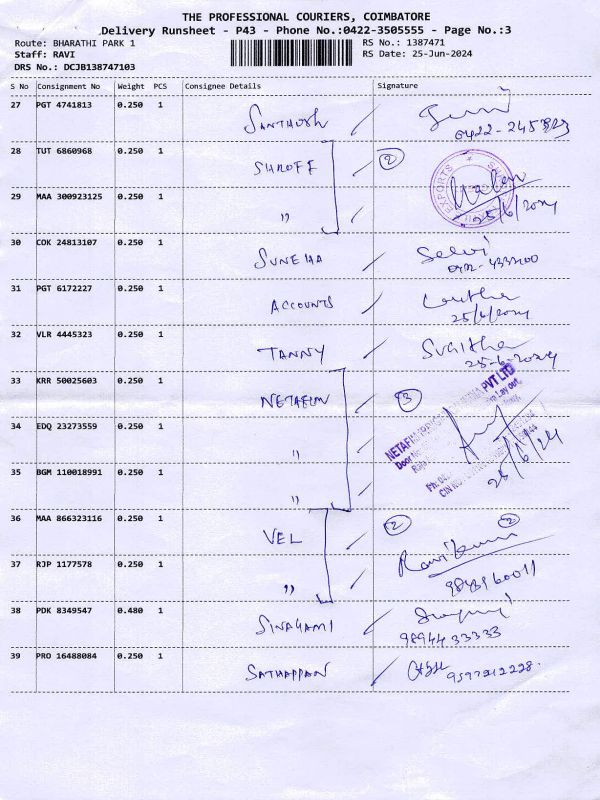 THE PROFESSIONAL COURIERS, COIMBATORE
Delivery Runsheet - P43 - Phone No.:0422-3505555 - Page No.:3
Route: BHARATHI PARK 1 RS No.: 1387471
Staff: RAVI RS Date: 25-Jun-2024
DRS No.: DCJB138747103
S No Consignment No Weight PCS Consignee Details Signature
27 PGT 4741813 0.250 1 SANTHOSH
28 TUT 6860968 0.250 1 SHROFF 2
29 MAA 300923125 0.250 1 " 25/6/2024
30 COK 24813107 0.250 1 SUNEHA Selvi
31 PGT 6172227 0.250 1 ACCOUNTS
25/6/2024
32 VLR 4445323 0.250 1 TANNY Sugitha
25-6-2024
33 KRR 50025603 0.250 1 NETAFIM 3
34 EDQ 23273559 0.250 1 "
35 BGM 110018991 0.250 1 " 25/6/24
36 MAA 866323116 0.250 1 VEL 2 2
Ravikumar
37 RJP 1177578 0.250 1 "
38 PDK 8349547 0.480 1 SIVAGAMI
9894433333
39 PRO 16488084 0.250 1 SATHAPPAN 9597212228.